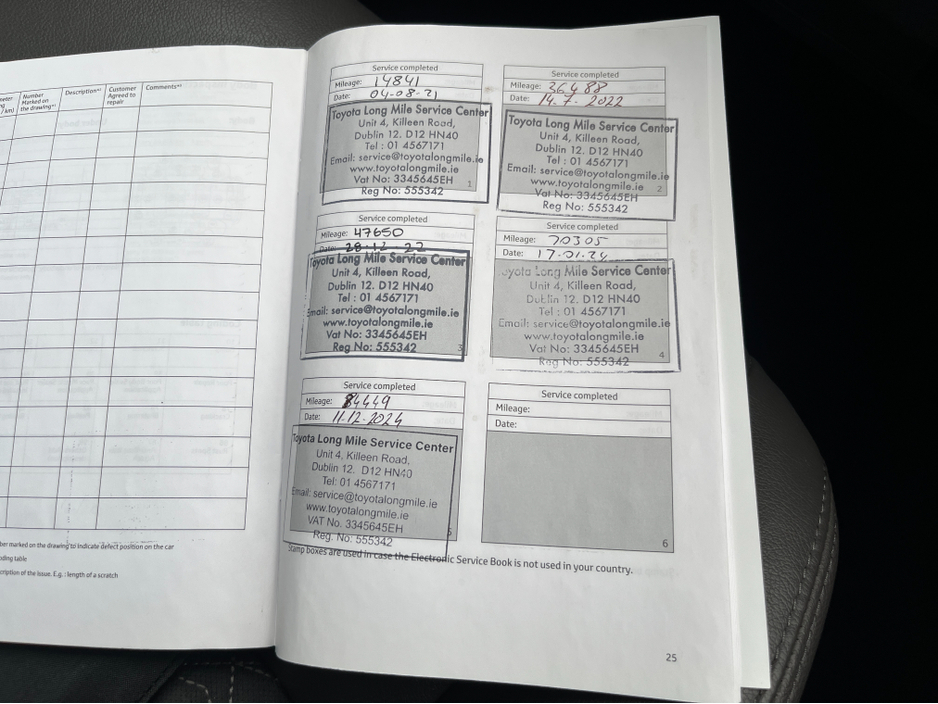 Number
Marked on
the drawing*¹
Description*²
Customer
Agreed to
repair
Comments*³
Service completed
Mileage: 14841
Date: 04-08-21
Toyota Long Mile Service Center
Unit 4, Killeen Road,
Dublin 12. D12 HN40
Tel : 01 4567171
Email: service@toyotalongmile.ie
www.toyotalongmile.ie
Vat No: 3345645EH
Reg No: 555342
1
Service completed
Mileage: 36488
Date: 14.7.2022
Toyota Long Mile Service Center
Unit 4, Killeen Road,
Dublin 12. D12 HN40
Tel : 01 4567171
Email: service@toyotalongmile.ie
www.toyotalongmile.ie
Vat No: 3345645EH
Reg No: 555342
2
Service completed
Mileage: 47650
Date: 28-12-22
Toyota Long Mile Service Center
Unit 4, Killeen Road,
Dublin 12. D12 HN40
Tel : 01 4567171
Email: service@toyotalongmile.ie
www.toyotalongmile.ie
Vat No: 3345645EH
Reg No: 555342
3
Service completed
Mileage: 70305
Date: 17-01-24
Toyota Long Mile Service Center
Unit 4, Killeen Road,
Dublin 12. D12 HN40
Tel : 01 4567171
Email: service@toyotalongmile.ie
www.toyotalongmile.ie
Vat No: 3345645EH
Reg No: 555342
4
Service completed
Mileage: 84449
Date: 11.12.2024
Toyota Long Mile Service Center
Unit 4, Killeen Road,
Dublin 12. D12 HN40
Tel: 01 4567171
Email: service@toyotalongmile.ie
www.toyotalongmile.ie
VAT No. 3345645EH
Reg. No: 555342
5
Service completed
Mileage:
Date:
6
marked on the drawing to indicate defect position on the car
table
of the issue. E.g. : length of a scratch
Stamp boxes are used in case the Electronic Service Book is not used in your country.
25